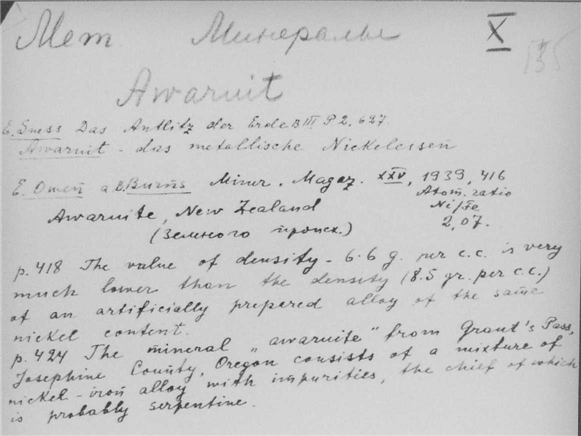 Мет Минералы X
135
Awaruit
E. Suess Das Antlitz der Erde B III P 2, 627.
Awaruit - das metallische Nickeleisen
E. Owen a. B. Burns Miner. Magaz. XXV, 1939, 416
Awaruite, New Zealand Atom. ratio
(Земного происх.) Ni/Fe
2,07.
p. 418 The value of density - 6.6 g. per c.c. is very
much lower than the density (8.5 gr. per c.c.)
of an artificially prepared alloy of the same
nickel content.
p. 424 The mineral „awaruite" from Grant's Pass,
Josephine County, Oregon consists of a mixture of
nickel-iron alloy with impurities, the chief of which
is probably serpentine.